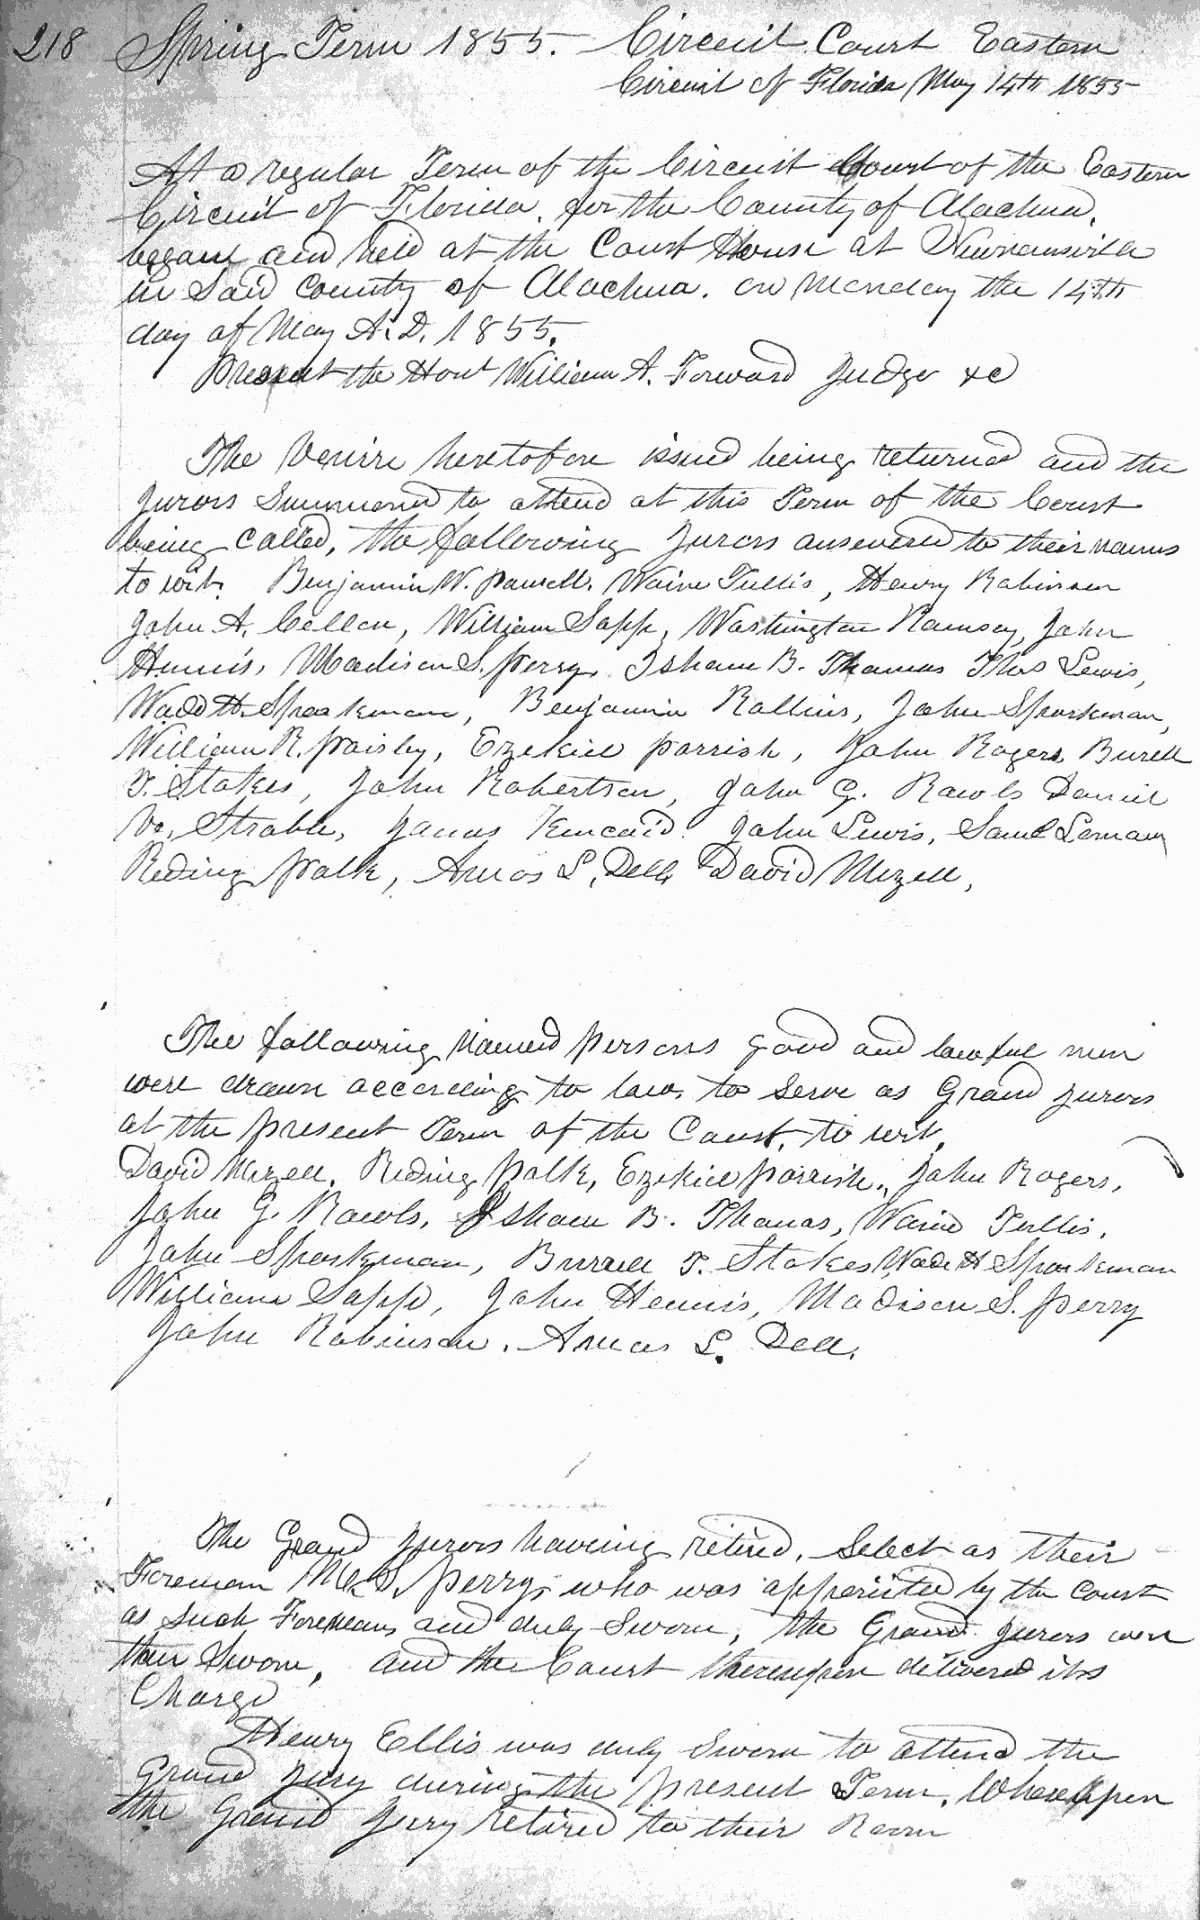 218 Spring Term 1855. Circuit Court Eastern
Circuit of Florida May 14th 1855
At a regular Term of the Circuit Court of the Eastern
Circuit of Florida, for the County of Alachua,
began and held at the Court House at Newnansville
in Said County of Alachua. on Monday the 14th
day of May A.D. 1855.
Present the Honl William A. Forward Judge &c
The Venire heretofore issued being returned and the
jurors Summoned to attend at this Term of the Court
being called, the following jurors answered to their names
to wit. Benjamin W. Powell. Waine Tullis, Henry Robinson
John A. Cellon, William Sapp, Washington Ramsey, John
Hennis, Madison S. Perry, Isham B. Thomas Thos Lewis,
Wade H. Sparkman, Benjamin Rollins, John Sparkman,
William R. Paisley, Ezekiel Parrish, John Rogers, Burell
T. Stokes, John Robertson, John G. Rawls Daniel
Strable, James Kincaid. John Lewis, Saml
Reding Polk, Amos L. Dell, David Mizell,
The following named persons good and lawful men
were drawn according to law, to serve as Grand jurors
at the present Term of the Court, to wit,
David Mizell, Reding Polk, Ezekiel Parrish, John Rogers,
John G. Rawls, Isham B. Thomas, Waine Tullis,
John Sparkman, Burrell T. Stokes Wade H Sparkman
William Sapp, John Hennis, Madison S. Perry
John Robinson. Amos L. Dell.
The Grand jurors having retired, Select as their
Foreman M. S. Perry, who was appointed by the Court
as such Foreman and duly Sworn, the Grand jurors were
then Sworn, and the Court thereupon delivered its
Charge
Henry Ellis was duly Sworn to attend the
Grand jury during the present Term, Whereupon
the Grand jury retired to their Room